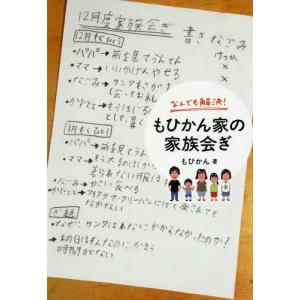 12月度家族会ぎ
書き なごみ
12月もくひょう
けっか
・パパ→前を見てうんてん ×
・ママ→いいかげんやせる ×
・なごみ→サンタをさが
会ってお礼
・かずとと→もうはじ
として、
なんでも解決!
もひかん家の
家族会ぎ
もひかん 著
1月もくひょう
・パパ→前を見てうん
・ママ→もう太るのはし
着られない服は
・なごみ→やさい食べる
・かずとと→マイクラで クリーパーにばく発されても
なかない
ぎ題
・なぜ、サンタはわなにかからなかったのか?
→あの日はそんなのにかまう
時間がない